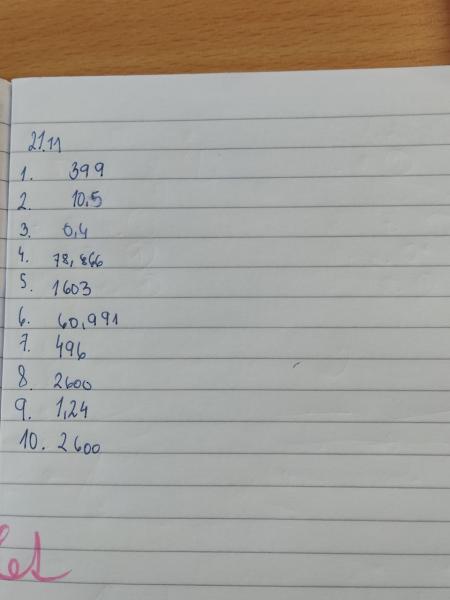 21.11
1. 399
2. 10,5
3. 0,4
4. 78,866
5. 1603
6. 60,991
7. 496
8. 2600
9. 1,24
10. 2600